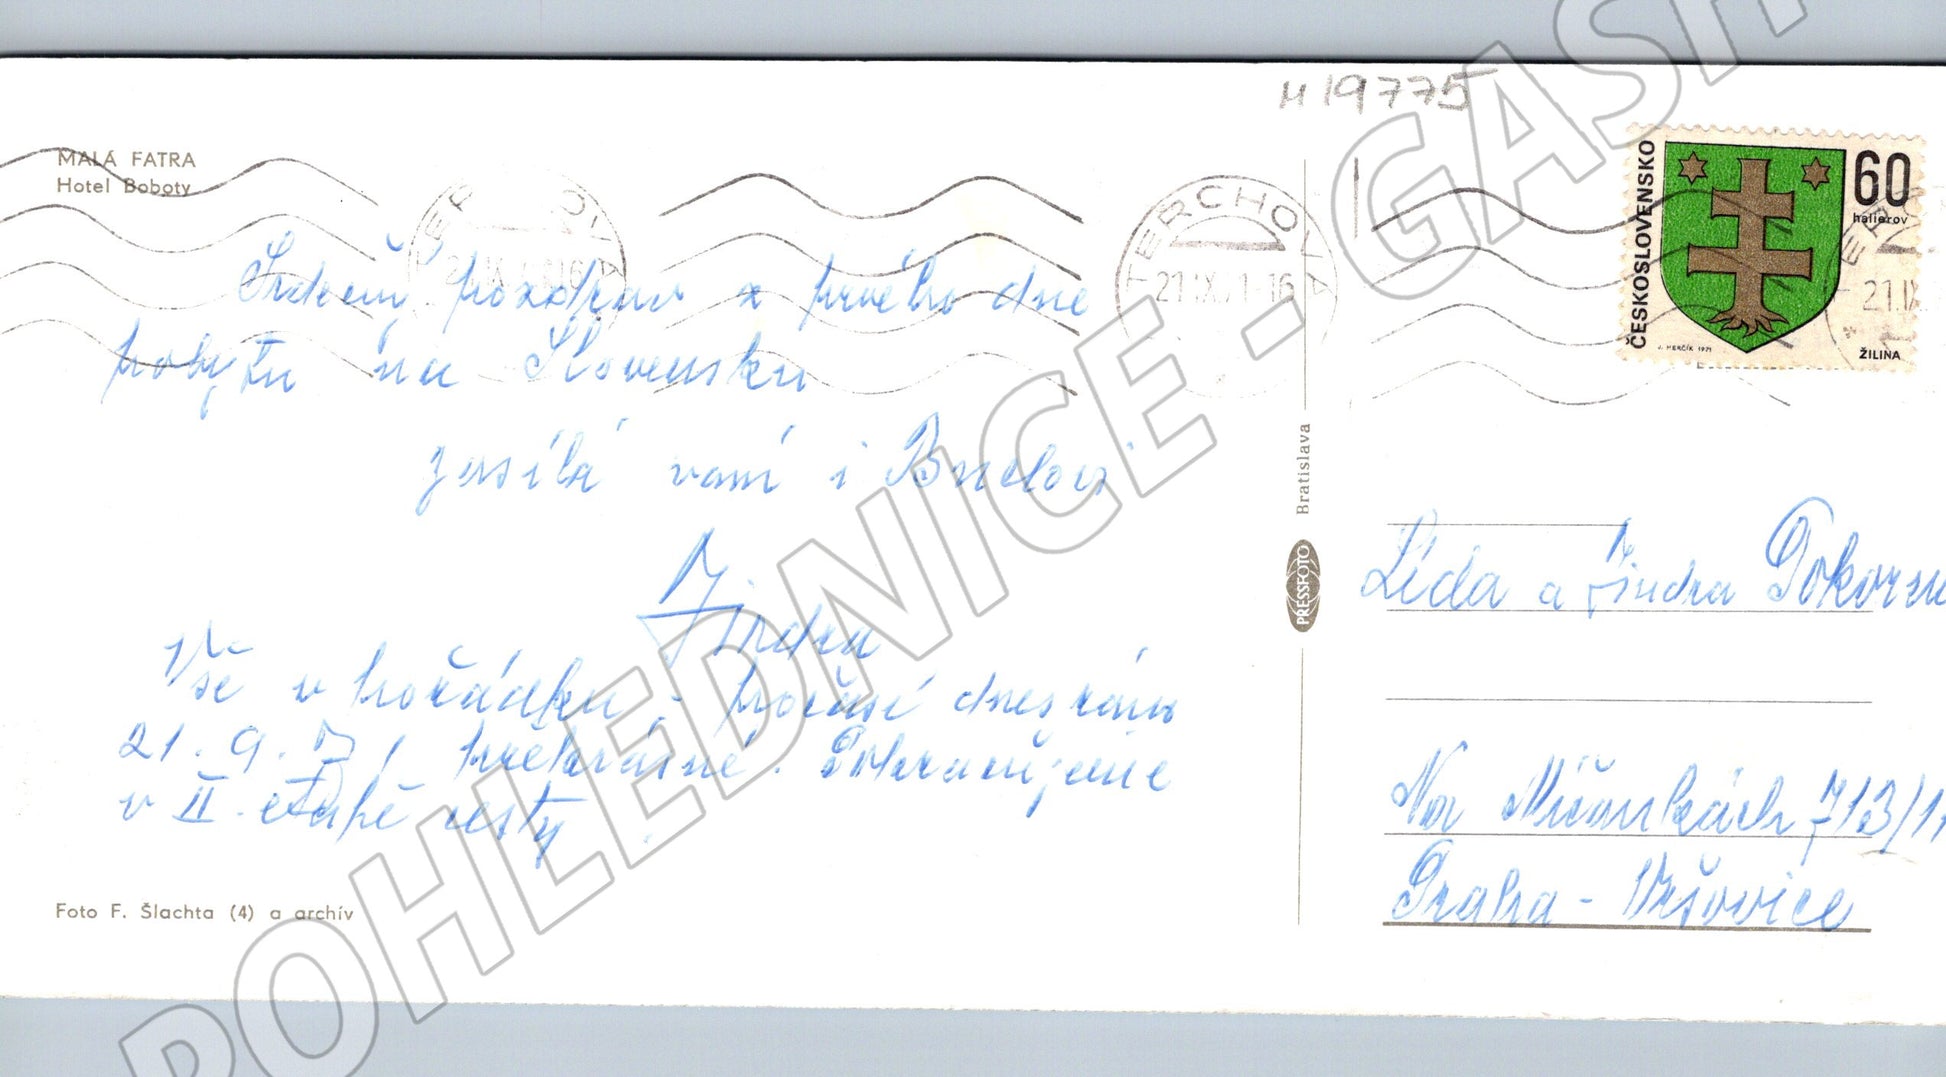 H 19775
MALÁ FATRA
Hotel Boboty
TERCHOVÁ
21.IX.71-16
ČESKOSLOVENSKO
60
halierov
J. HERČÍK 1971
ŽILINA
Srdečný pozdrav z prvého dne
pobytu na Slovensku
zasílá vám i
Jindra
Vše v pořádku - počasí dnes ráno
21. 9. 71 překrásné. Pokračujeme
v II. etapě cesty
Foto F. Šlachta (4) a archív
Bratislava
PRESSFOTO
Lída a Jindra Pokorn
Na Míčánkách 713/1
Praha - Vršovice
POHLEDNICE - GASH